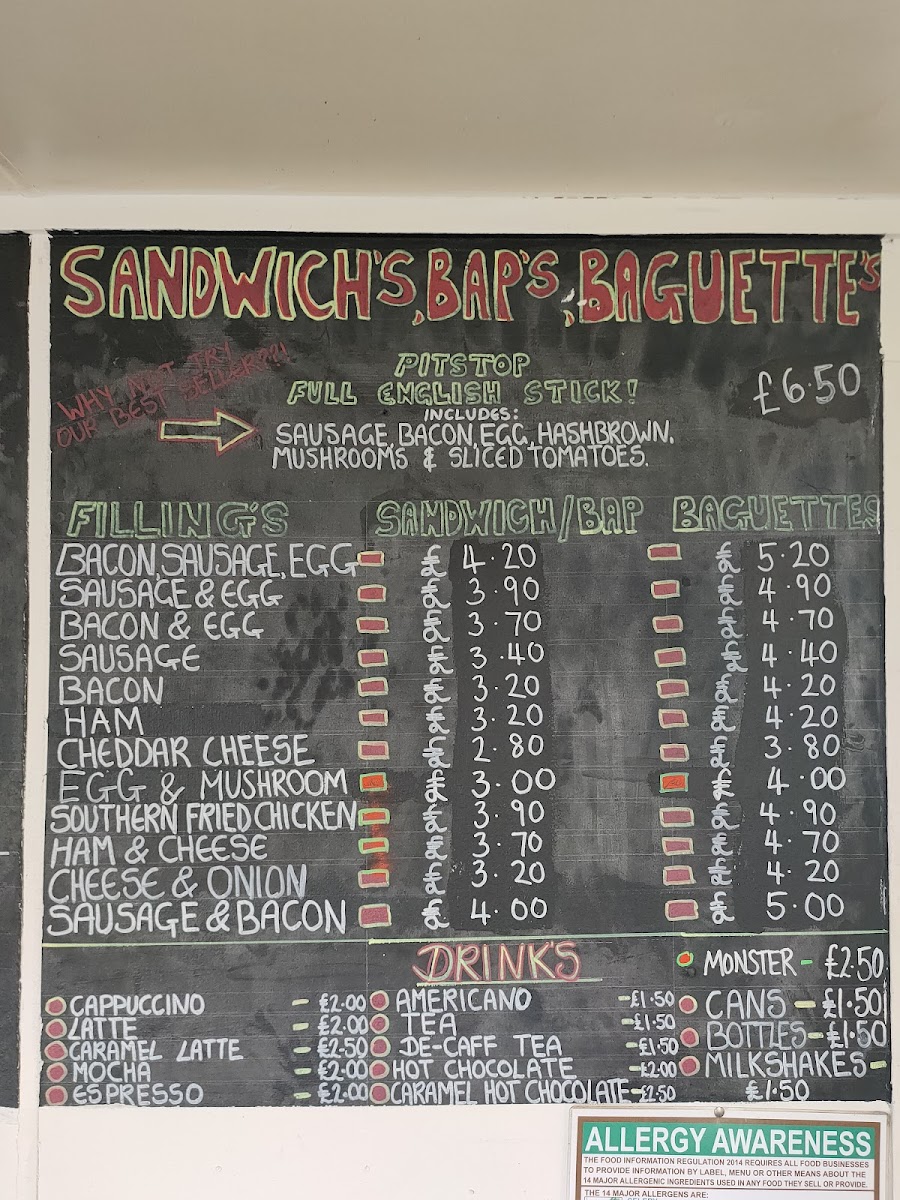 SANDWICH'S, BAP'S, BAGUETTE'S
WHY NOT TRY
OUR BEST SELLER???!
PITSTOP
FULL ENGLISH STICK!
£6.50
INCLUDES:
SAUSAGE, BACON, EGG, HASHBROWN.
MUSHROOMS & SLICED TOMATOES.
FILLING'S SANDWICH/BAP BAGUETTES
BACON, SAUSAGE, EGG £4.20 £5.20
SAUSAGE & EGG £3.90 £4.90
BACON & EGG £3.70 £4.70
SAUSAGE £3.40 £4.40
BACON £3.20 £4.20
HAM £3.20 £4.20
CHEDDAR CHEESE £2.80 £3.80
EGG & MUSHROOM £3.00 £4.00
SOUTHERN FRIED CHICKEN £3.90 £4.90
HAM & CHEESE £3.70 £4.70
CHEESE & ONION £3.20 £4.20
SAUSAGE & BACON £4.00 £5.00
DRINK'S
CAPPUCCINO - £2.00
LATTE - £2.00
CARAMEL LATTE - £2.50
MOCHA - £2.00
ESPRESSO - £2.00
AMERICANO - £1.50
TEA - £1.50
DE-CAFF TEA - £1.50
HOT CHOCOLATE - £2.00
CARAMEL HOT CHOCOLATE - £2.50
MONSTER - £2.50
CANS - £1.50
BOTTLES - £1.50
MILKSHAKES -
£1.50
ALLERGY AWARENESS
THE FOOD INFORMATION REGULATION 2014 REQUIRES ALL FOOD BUSINESSES
TO PROVIDE INFORMATION BY LABEL, MENU OR OTHER MEANS ABOUT THE
14 MAJOR ALLERGENIC INGREDIENTS USED IN ANY FOOD THEY SELL OR PROVIDE.
THE 14 MAJOR ALLERGENS ARE: